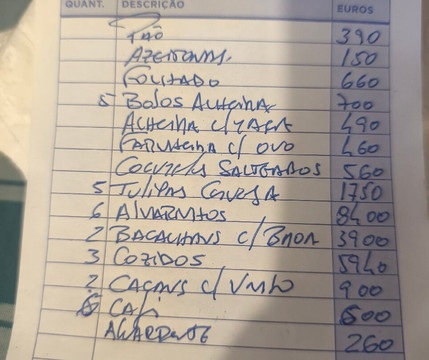 QUANT. DESCRIÇÃO EUROS
PÃO 390
AZEITONAS. 150
FOLHADO 660
5 Bolos ALHEIRA 700
ALHEIRA C/ 490
FARINHEIRA C/ OVO 460
SALTEADOS 560
5 TULIPAS CERVEJA 1750
6 ALVARINHOS 8400
2 BACALHAUS C/ BROA 3900
3 COZIDOS 5940
2 C/ 900
6 CAFÉ 600
AGUARDENTE 260